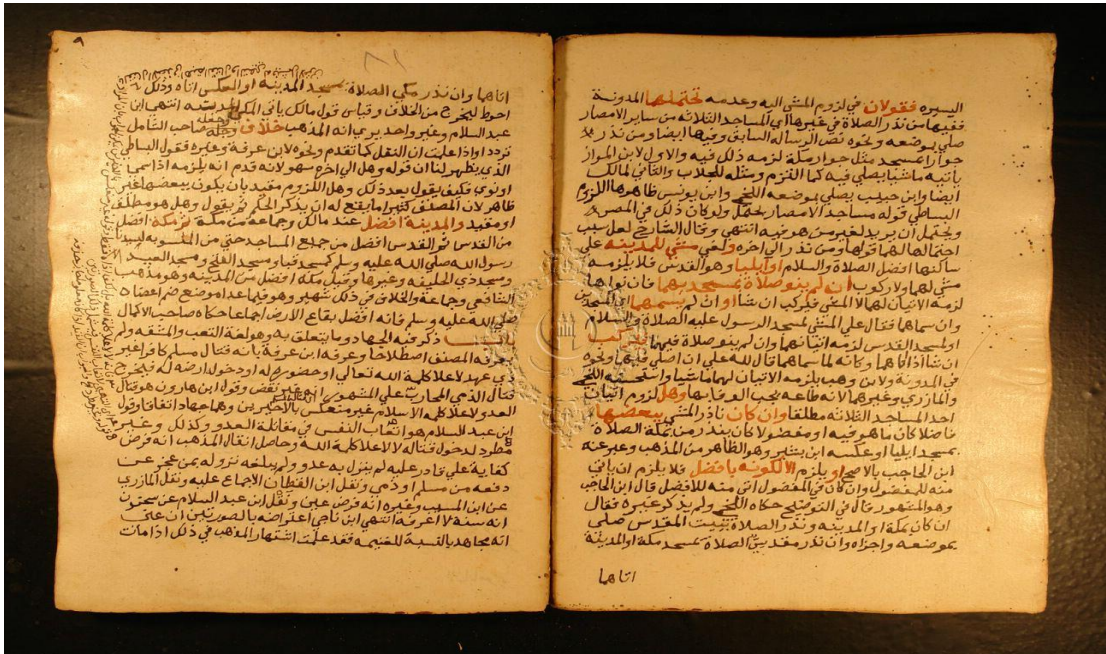 اليسيره فقولان في لزوم المشي اليه وعدمه تحتملها المدونة
ففيها من نذر الصلاة في غيرها اي المساجد الثلاثه من ساير الامصار
صلي بموضعه ونحوه نص الرساله السابق وفيها ايضا ومن نذر
جوارا بمسجد مثل جوار مكة لزمه ذلك فيه والاول لابن المواز
ياتيه ماشيا يصلي فيه كما التزم ومثله للجلاب والثاني لمالك
ايضا وابن حبيب يصلي بموضعه اللخمي وابن يونس ظاهرها اللزوم
البساطي قوله مساجد الامصار يحتمل ولو كان ذلك في المصر
ويحتمل ان يريد لغير من هو فيه انتهي وقال الشارح لعل سبب
احتمالها لهما قولها ومن نذر الي اخره ولغي مشي للمدينه علي
ساكنها افضل الصلاة والسلام او ايليا وهو القدس فلا يلزمه
مشي لهما ولا ركوب ان لم ينو صلاة بمسجديهما فان نواها
لزمه الاتيان لهما لا المشي فيركب ان شا او ان لم يسمهما اي المسجدين
وان سماها فقال علي المشي لمسجد الرسول عليه الصلاة والسلام
او لمسجد القدس لزمه اتيانهما وان لم ينو صلاة فيهما فيركب
ان شا اذا كانهما وكانه لما سماهما قال لله علي ان اصلي فيهما ونحوه
في المدونة ولابن وهب يلزمه الاتيان لهما ماشيا واستحسنه اللخمي
والمازري وغيرهما لانه طاعه يجب الوفا بها وهل لزوم اتيان
احد المساجد الثلاثه مطلقا وان كان ناذر المشي ببعضها
فاضلا كان ما هو فيه او مفضولا كان ينذر من بمكة الصلاة
بمسجد ايليا او عكسه ابن بشير وهو الظاهر من المذهب وعبر عنه
ابن الحاجب بالاصح او يلزم الا لكونه بافضل فلا يلزم ان ياتي
منه للمفضول وان كان في المفضول اتي منه للافضل قال ابن الحاجب
وهو المشهور قال في التوضيح حكاه اللخمي ولم يذكر غيره فقال
ان كان بمكة او المدينه ونذر الصلاة ببيت المقدس صلي
بموضعه واجزاه وان نذر مقدسي الصلاة بمسجد مكة او المدينة
اتاهما
٩
اتاهما وان نذر مكي الصلاة بمسجد المدينه او العكس اتاه وذلك
احوط ليخرج من الخلاف وقياس قول مالك ياتي المكي المدينه انتهي ابن
عبد السلام وغير واحد يري انه المذهب خلاف وجعله صاحب الشامل
تردد او اذا علمت ان النقل كما تقدم ونحوه لابن عرفة وغيره فقول البساطي
الذي يظهر لنا ان قوله وهل الي اخره سهو لانه قدم انه يلزمه اذا سمي
او نوي فكيف يقول بعد ذلك وهل اللزوم مقيد بان يكون ببعضها غير
ظاهر لان المصنف كثيرا ما يقع له ان يذكر الحكم ثم يقول وهل هو مطلق
او مقيد والمدينة افضل عند مالك وجماعة من مكة ثم مكة افضل
من القدس ثم القدس افضل من جميع المساجد حتي من المنسوبه لسيدنا
رسول الله صلي الله عليه وسلم كمسجد قبا ومسجد الفتح ومسجد العيد
ومسجد ذي الحليفه وغيرها وقيل مكة افضل من المدينه وهو مذهب
الشافعي وجماعة والخلاف في ذلك شهير وهو فيما عدا موضع ضم اعضاه
صلي الله عليه وسلم فانه افضل بقاع الارض اجماعا حكاه صاحب الاكمال
ذكر فيه الجهاد وما يتعلق به وهو لغة التعب والمشقه ولم
يعرفه المصنف اصطلاحا وعرفه ابن عرفة بانه قتال مسلم كافرا غير
ذي عهد لاعلا كلمة الله تعالي او حضوره له او دخول ارضه له فيخرج
قتال الذمي المحارب علي المشهور انه غير نقض وقول ابن هارون هو قتال
العدو لاعلا كلمه الاسلام غير منعكس بالاخيرين وهما جهاد اتفاقا وقول
ابن عبد السلام هو اتعاب النفس في مقاتلة العدو وكذلك وغير
مطرد لدخول قتاله لا لاعلا كلمة الله وحاصل انقال المذهب انه فرض
كفاية علي قادر عليه لم ينزل به عدو ولم يبلغه نزوله بمن عجز عن
دفعه من مسلم او ذمي ونقل ابن القطان الاجماع عليه ونقل المازري
عن ابن المسيب وغيره انه فرض عين ونقل ابن عبد السلام عن سحنون
انه سنة لا اعرفه انتهي ابن ناجي اعتراضه بالصورتين ان علي
انه مجاهد بالنسبة للغنيمه فقد علمت اشتهار المذهب في ذلك اذا مات